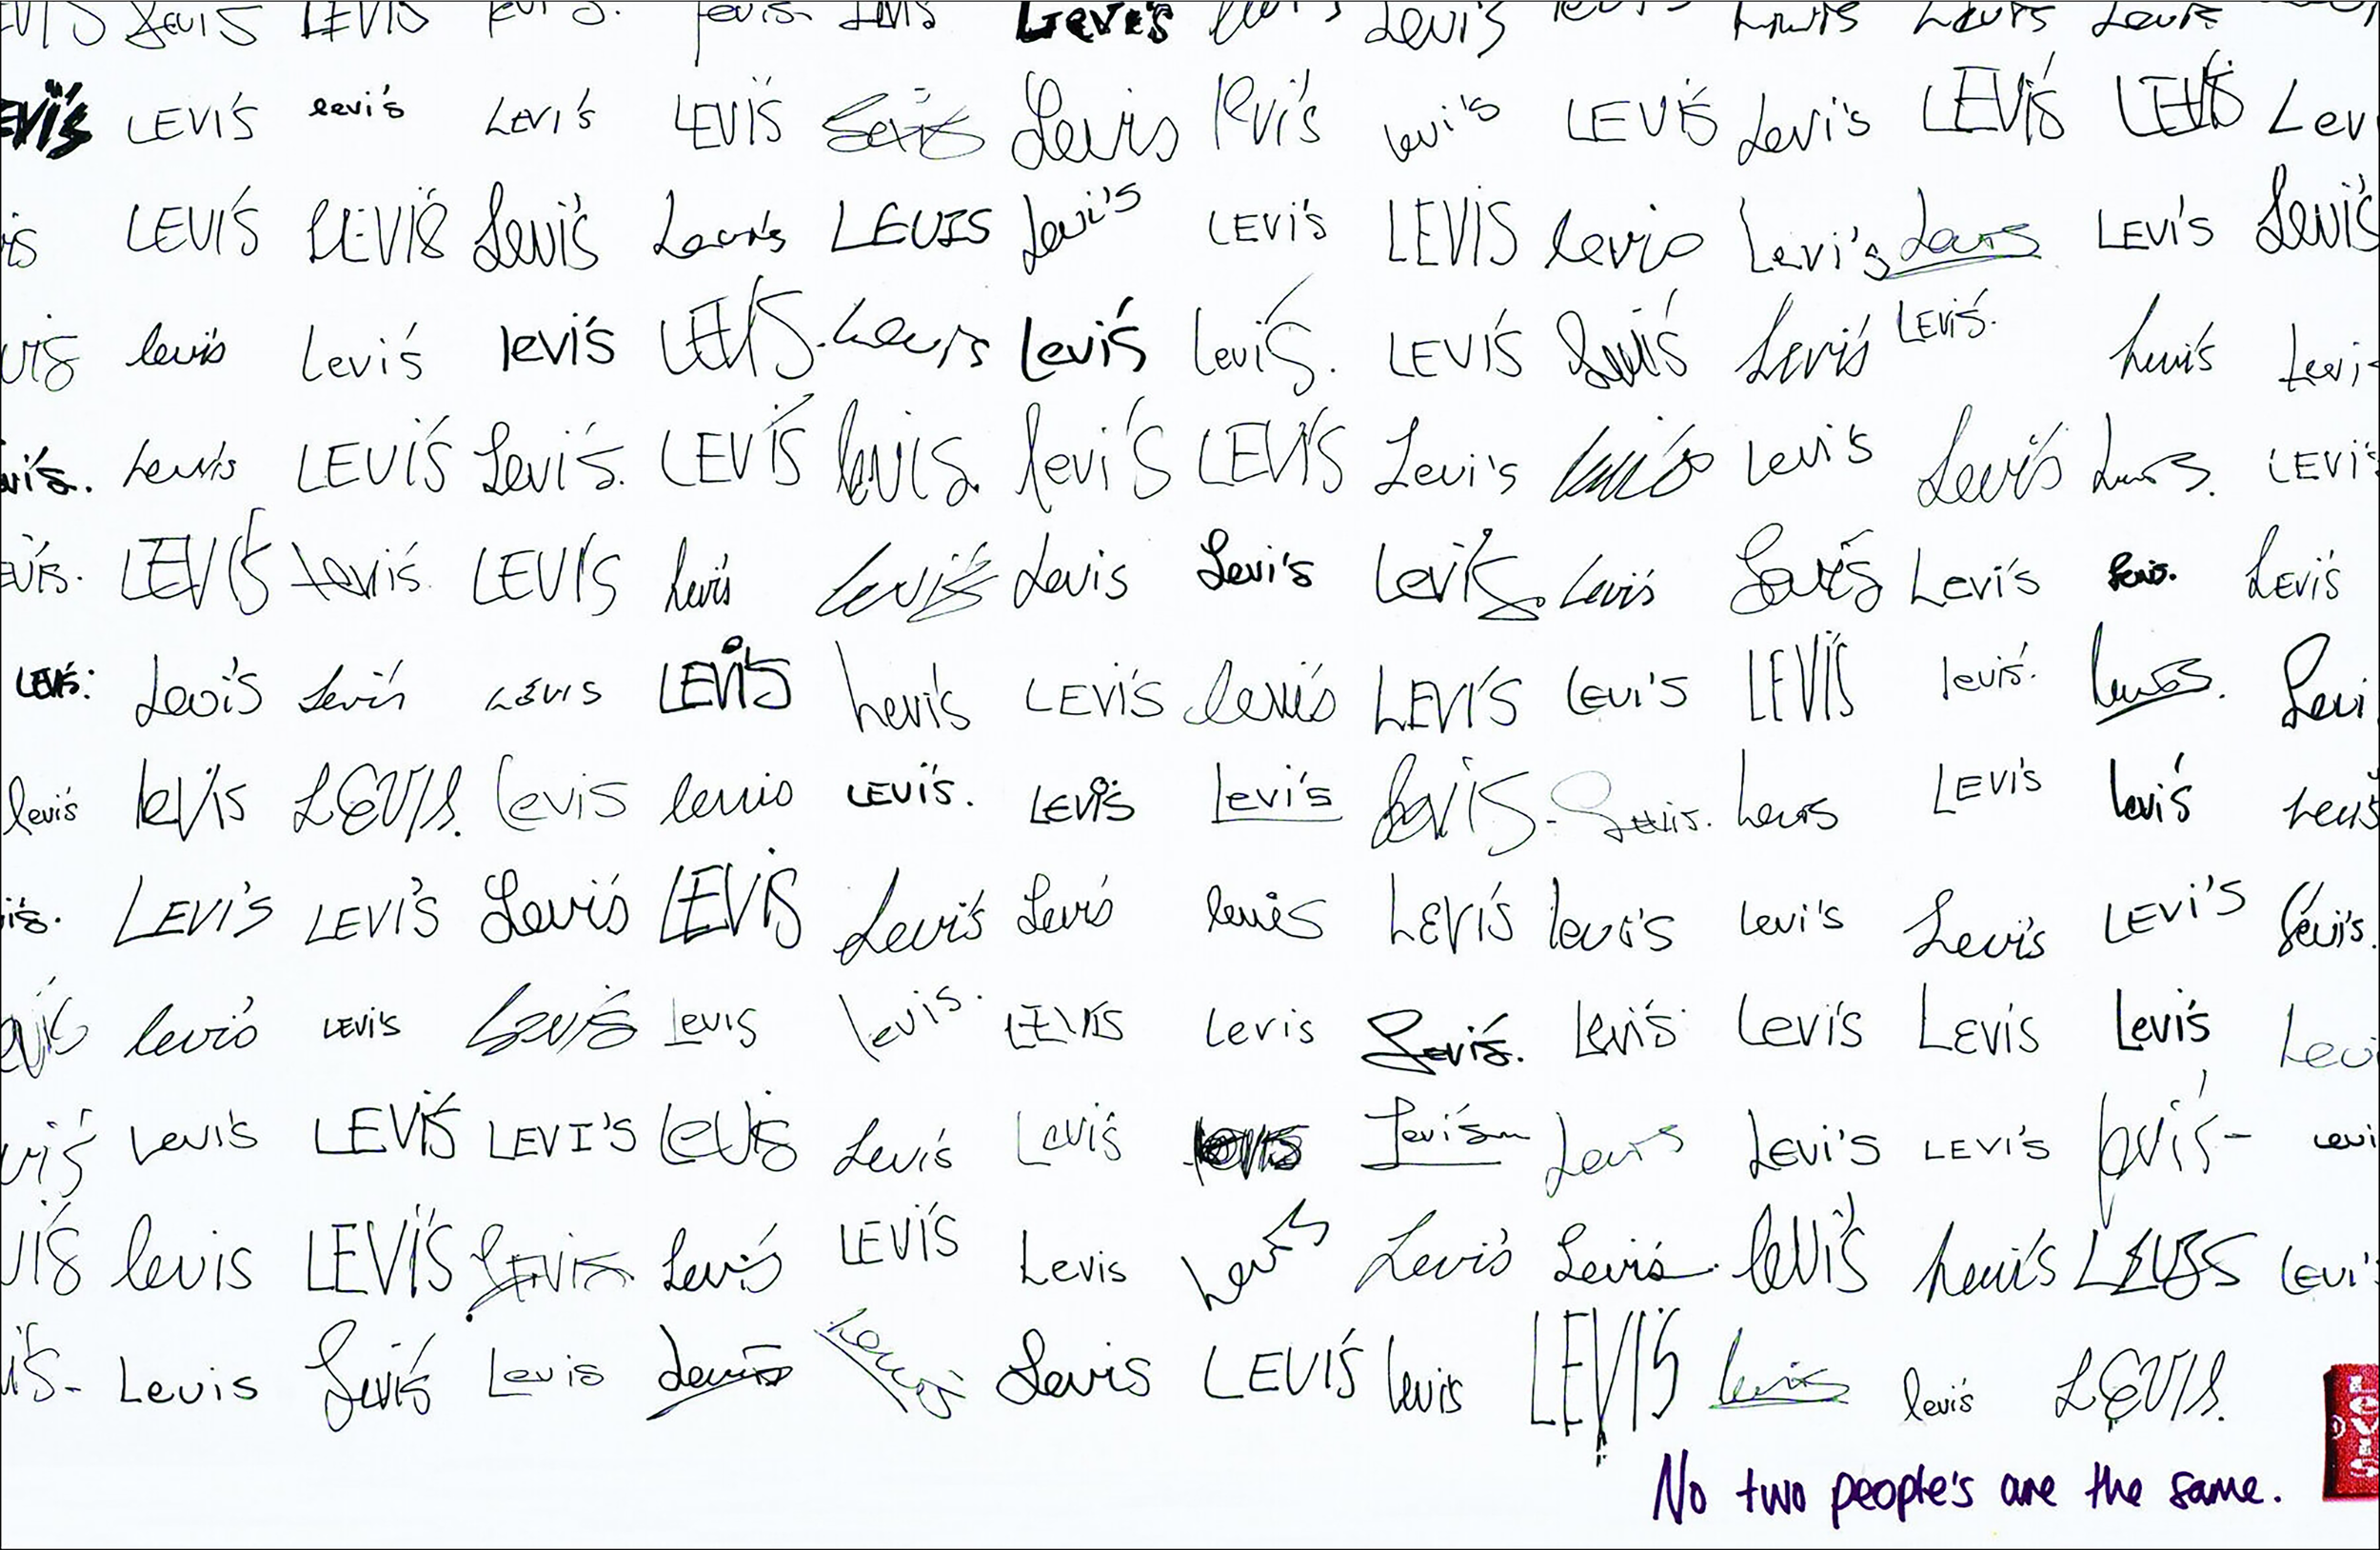 Levis LEVIS Levi's Levi's
LEVI'S levi's LEVI'S LEVI'S Levis levi's LEVI'S Levi's LEVI'S LEVI'S Lev
LEVI'S LEVI'S Levi's Levi's LEVIS Levi's LEVI'S LEVIS levis Levi's LEVI'S Levi's
levi's Levi's levi's LEVI'S Levis Levi's Levi's. LEVI'S Levi's Levi's LEVI'S. Levi's Levi
Levi's LEVI'S Levi's. LEVI'S levis. levi's LEVI'S Levi's levi's Levi's Levi's LEVI'S
LEVI'S Levi's LEVI'S Levi's Levi's Levis Levi's Levi's Levi's Levi's Levi's Levi's
LEVI'S: Levi's Levi's LEVIS LEVI'S Levi's LEVI'S levi's LEVI'S Levi's LEVI'S levi's. Levi
levi's levi's LEVIS. Levis levis LEVI'S. LEVI'S Levi's Levi's Levis LEVI'S levi's Levis
LEVI'S LEVI'S Levi's LEVIS Levi's Levi's levis LEVI'S levi's Levi's Levi's LEVI'S Levi's.
levi's LEVI'S Levi's Levis levis. LEVIS Levis Levi's. Levi's Levi's LEVIS Levi's Levi
Levi's LEVI'S LEVI'S LEVIS Levi's Levi's Levi's Levis Levi's LEVI'S levi's- Levi
levis LEVI'S Levi's LEVI'S Levis Levis Levi's Levi's levi's Levi's LEVIS LEVI'
Levis Levi's Levis Levis Levis Levis LEVI'S levis LEVI'S levis levi's LEVIS.
LEVI'S
No two people's are the same.